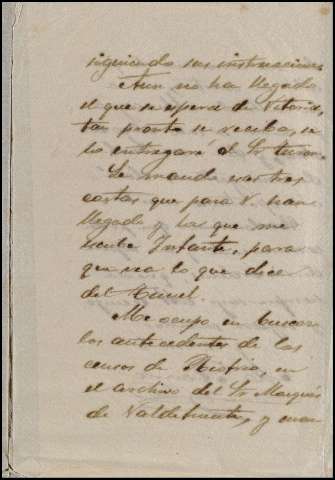 siguiendo sus instrucciones
Aun no ha llegado
el que se espera de Vitoria,
tan pronto se reciba, se
lo entregaré al Sr
Le mando las tres
cartas que para V. han
llegado y las que me
escribe Infante, para
que vea lo que dice
del
Me ocupo en buscar
los antecedentes de los
censos de Riofrio, en
el archivo del Sr Marqués
de Valdefuentes, y cuan